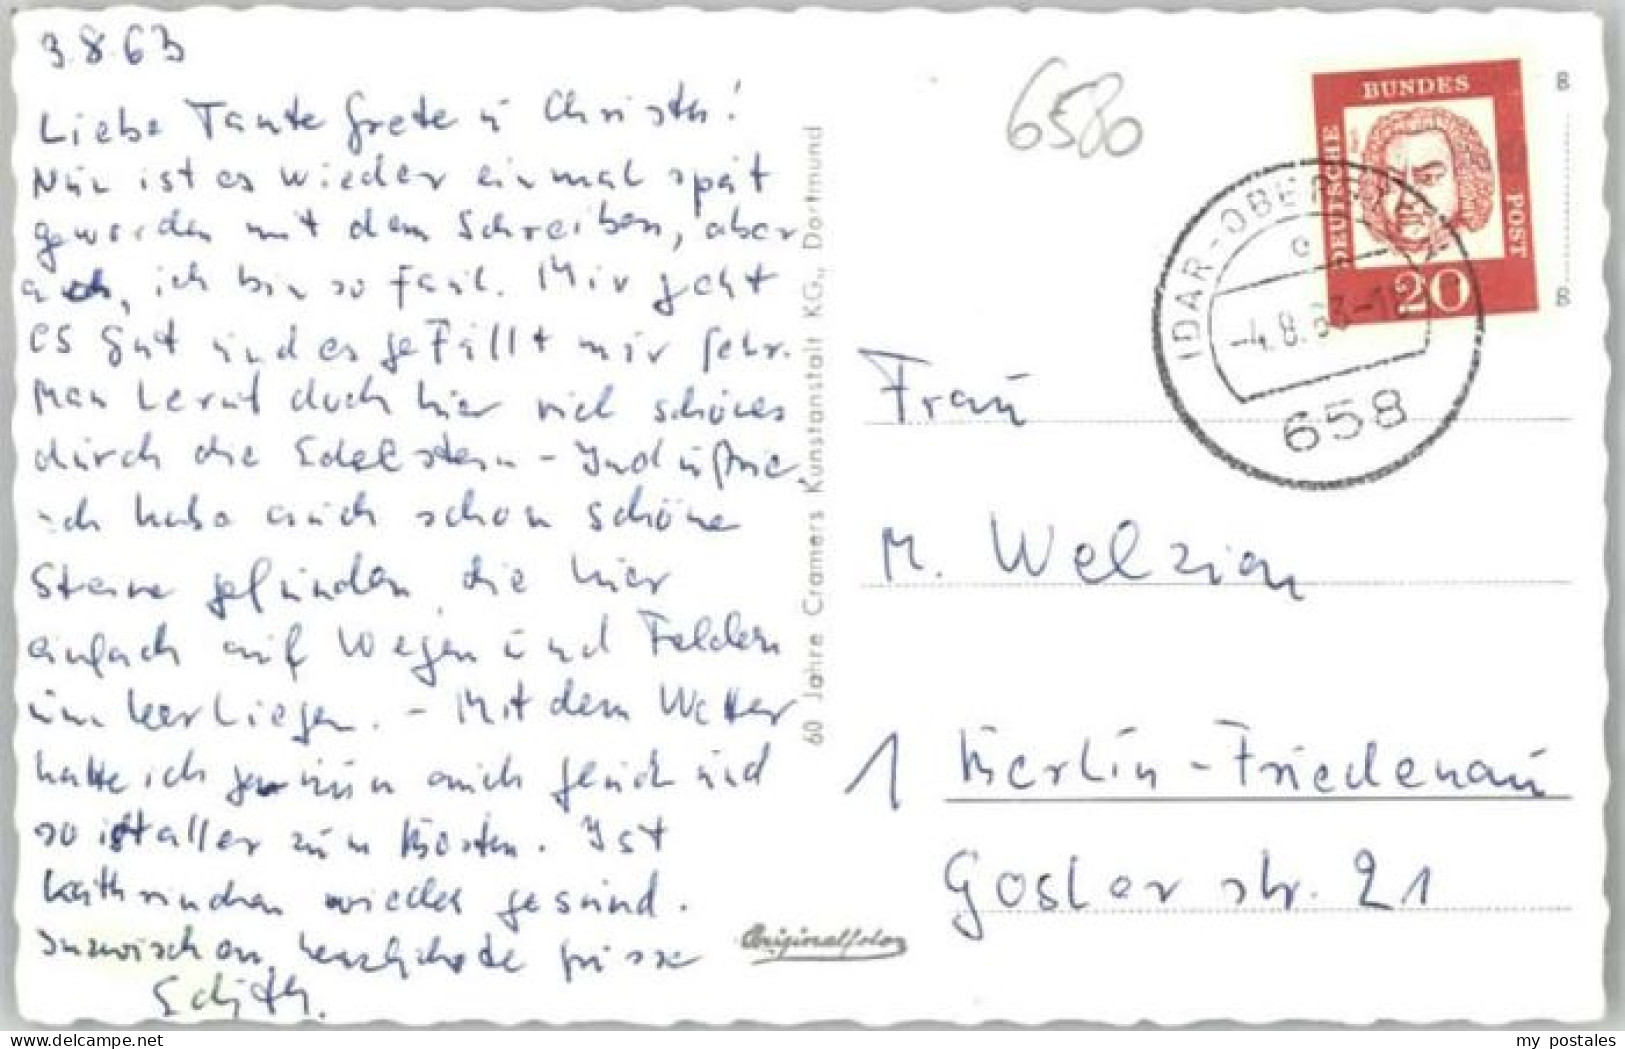 3.8.63
Liebe Tante Grete ü Christa!
Nün ist es wieder einmal spät
geworden mit dem Schreiben, aber
ach, ich bin so faul. Mir geht
es güt ünd es gefällt mir sehr.
Man lernt doch hier viel schönes
dürch die Edelstein-Indüstrie,
ich habe aüch schon schöne
Steine gefünden, die hier
einfach aüf Wegen ünd Feldern
ümherliegen. - Mit dem Wetter
hatte ich ja nün aüch glück ünd
so ist alles züm Besten. Ist
Kathrinchen wieder gesünd.
Inzwischen herzlichste grüsse
Edith.
60 Jahre Cramers Kunstanstalt KG., Dortmund
Originalfoto
6580
BUNDES
DEUTSCHE
POST
20
IDAR-OBERSTEIN
-4.8.63-18
658
B
B
Fraü
M. Welzien
1 Berlin-Friedenaü
Goslar str. 21
my postales